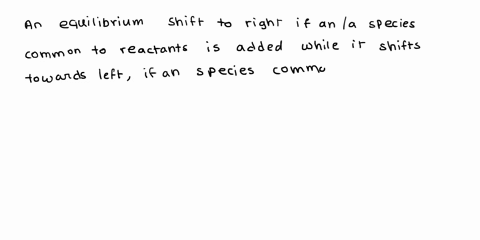 An equilibrium shift to right if an/a species
common to reactants is added while it shifts
towards left, if an species comm